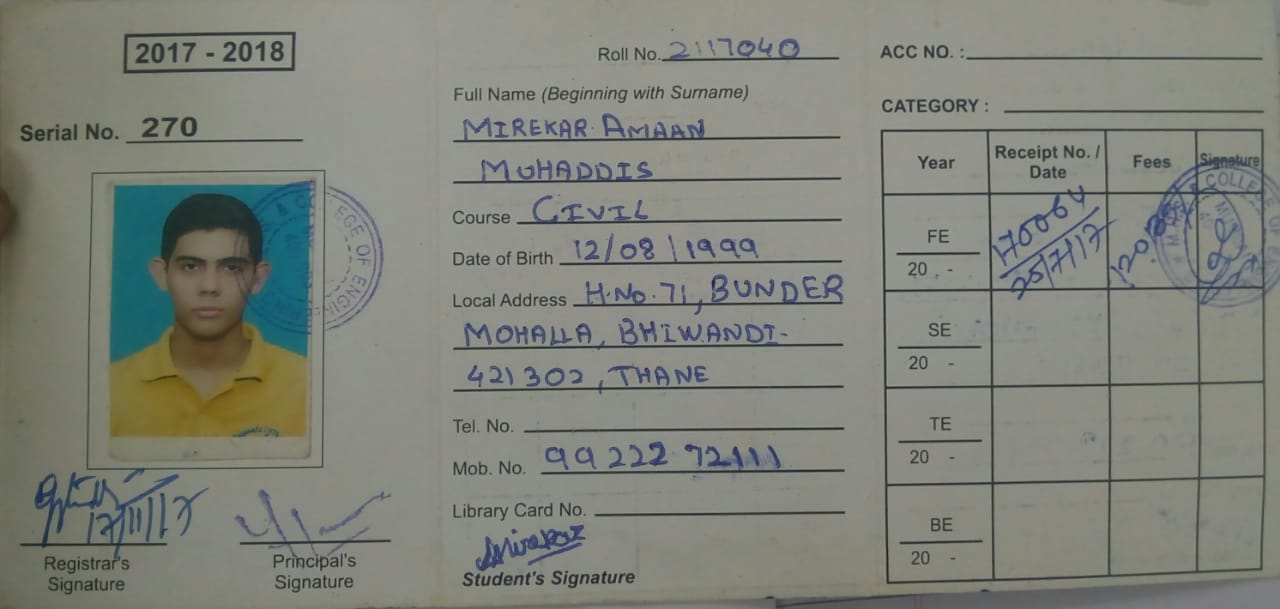 2017 - 2018
Serial No. 270
COLLEGE OF ENGINEERING
17/11/17
Registrar's
Signature
Principal's
Signature
Roll No. 2117040
Full Name (Beginning with Surname)
MIREKAR AMAAN
MUHADDIS
Course CIVIL
Date of Birth 12/08/1999
Local Address H.No. 71, BUNDER
MOHALLA, BHIWANDI-
421302, THANE
Tel. No.
Mob. No. 99222 72111
Library Card No.
Student's Signature
ACC NO. :
CATEGORY :
Year Receipt No. / Date Fees Signature
FE
20 -
170064
25/7/17
COLLEGE OF
SE
20 -
TE
20 -
BE
20 -